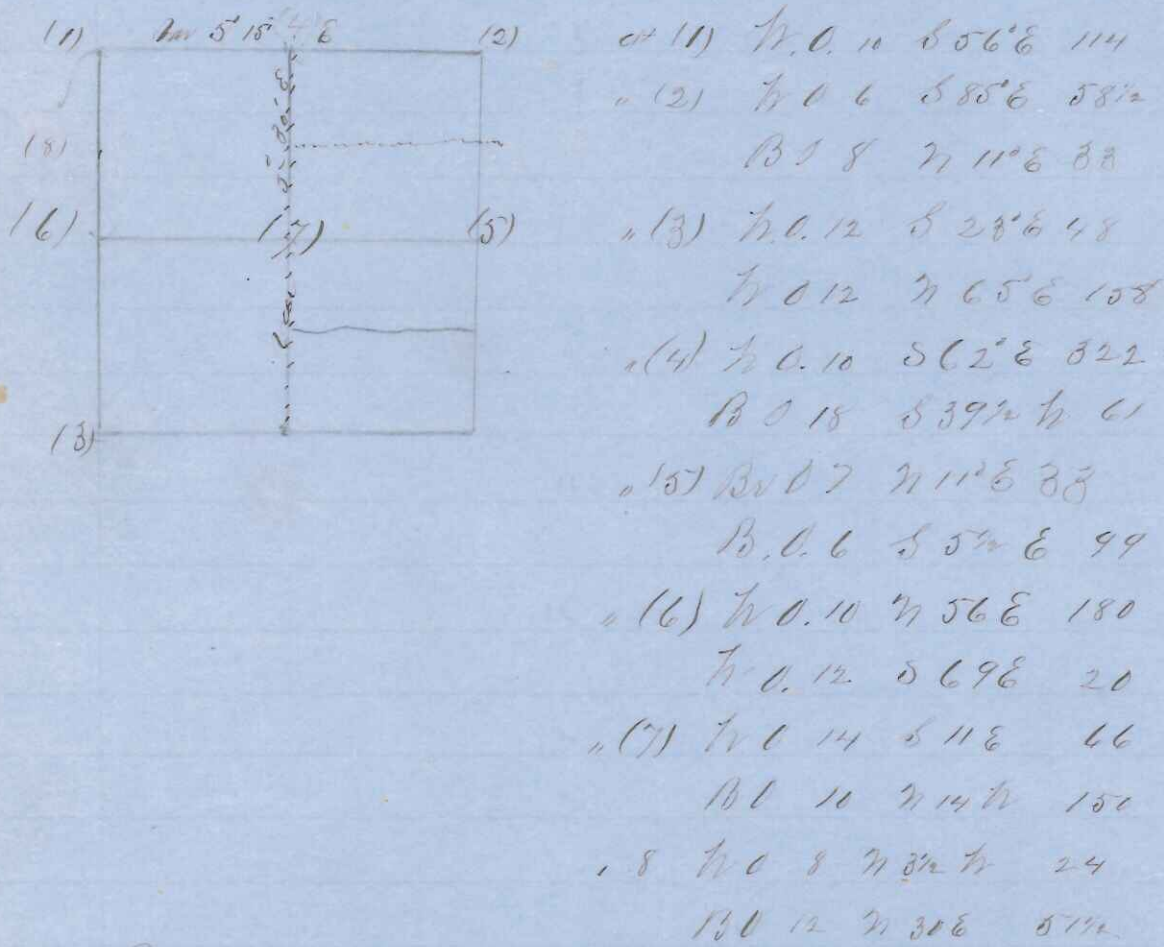 (1) Var 5° 15' E (2)
(8)
(6) (7) (5)
(3)
at (1) W.O. 10 S 56° E 114
" (2) W O 6 S 85° E 58½
B O 8 N 11° E 33
" (3) W.O. 12 S 23° E 48
W O 12 N 65 E 158
" (4) W O. 10 S 62° E 322
B O 18 S 39½ W 61
" (5) B O 7 N 11° E 33
B.O. 6 S 5½ E 99
" (6) W O. 10 N 56 E 180
W O. 12 S 69 E 20
" (7) W O 14 S 11 E 66
B O 10 N 14 W 150
" 8 W O 8 N 3½ W 24
B O 12 N 30 E 51½